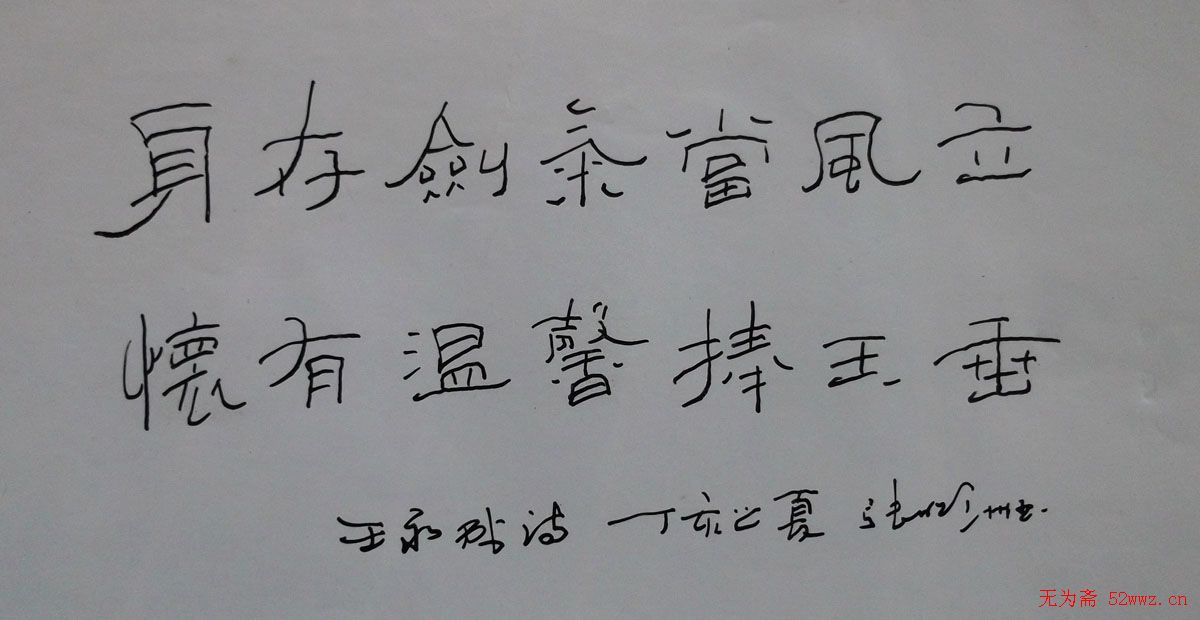 身存劍氣當風立
懷有溫馨捧玉垂
王永球詩 丁亥之夏 張
无为斋 52wwz.cn